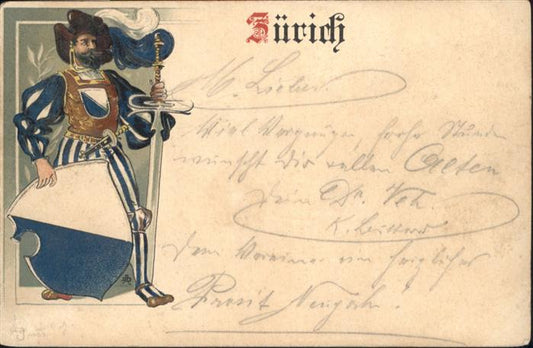 Zürich
M. Lieber
Viel Vergnügen, frohe Stunden
wünscht dir & allen Alten
Dein Dr. Veh.
Dem Vereine ein herzliches
Prosit Neujahr!